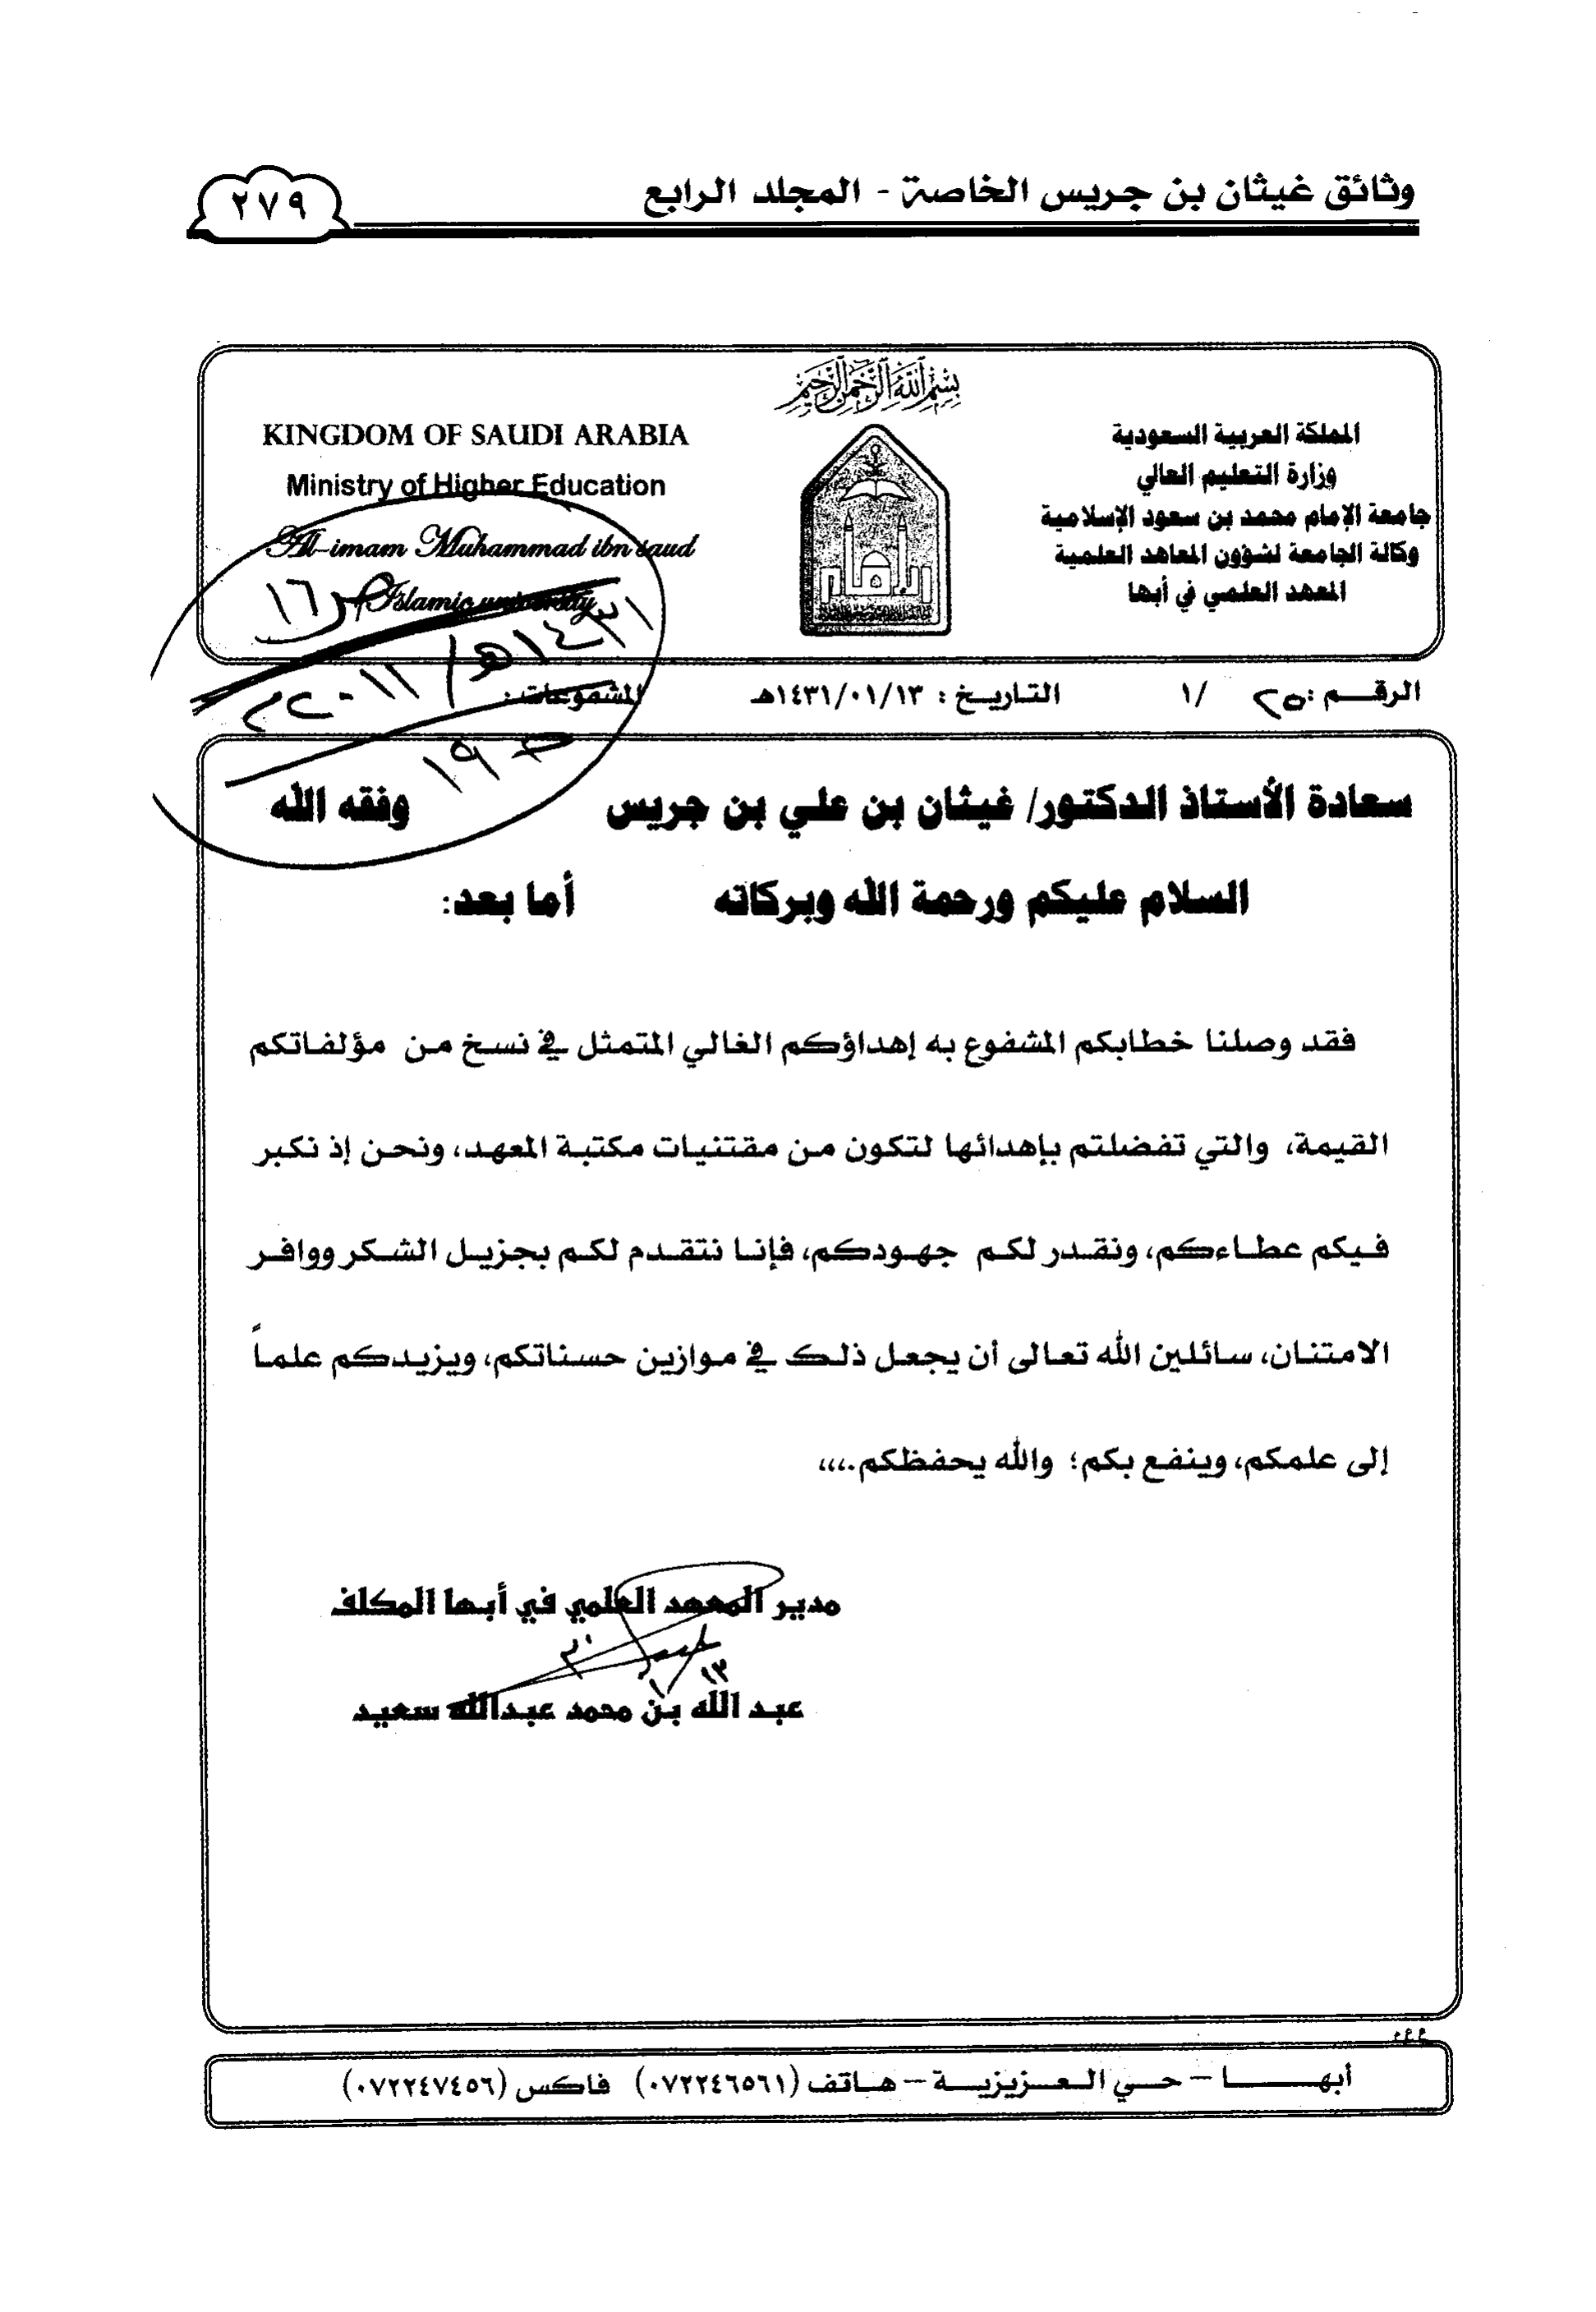 وثائق غيثان بن جريس الخاصة - المجلد الرابع
٢٧٩
بسم الله الرحمن الرحيم
المملكة العربية السعودية
وزارة التعليم العالي
جامعة الإمام محمد بن سعود الإسلامية
وكالة الجامعة لشؤون المعاهد العلمية
المعهد العلمي في أبها
KINGDOM OF SAUDI ARABIA
Ministry of Higher Education
Al-imam Muhammad ibn saud
Islamic university
١٦
١٤٣١هـ/
٢٠١١م
١٩
الرقم: ٢٥ /١ التاريخ: ١٤٣١/٠١/١٣هـ المشموعات:
سعادة الأستاذ الدكتور/ غيثان بن علي بن جريس وفقه الله
السلام عليكم ورحمة الله وبركاته أما بعد:
فقد وصلنا خطابكم المشفوع به إهداؤكم الغالي المتمثل في نسخ من مؤلفاتكم
القيمة، والتي تفضلتم بإهدائها لتكون من مقتنيات مكتبة المعهد، ونحن إذ نكبر
فيكم عطاءكم، ونقدر لكم جهودكم، فإنا نتقدم لكم بجزيل الشكر ووافر
الامتنان، سائلين الله تعالى أن يجعل ذلك في موازين حسناتكم، ويزيدكم علماً
إلى علمكم، وينفع بكم؛ والله يحفظكم.،،،
مدير المعهد العلمي في أبها المكلف
١٣/١
عبد الله بن محمد عبدالله سعيد
أبهـــا - حي العزيزية - هاتف (٠٧٢٢٤٦٥٦١) فاكس (٠٧٢٢٤٧٤٥٦)